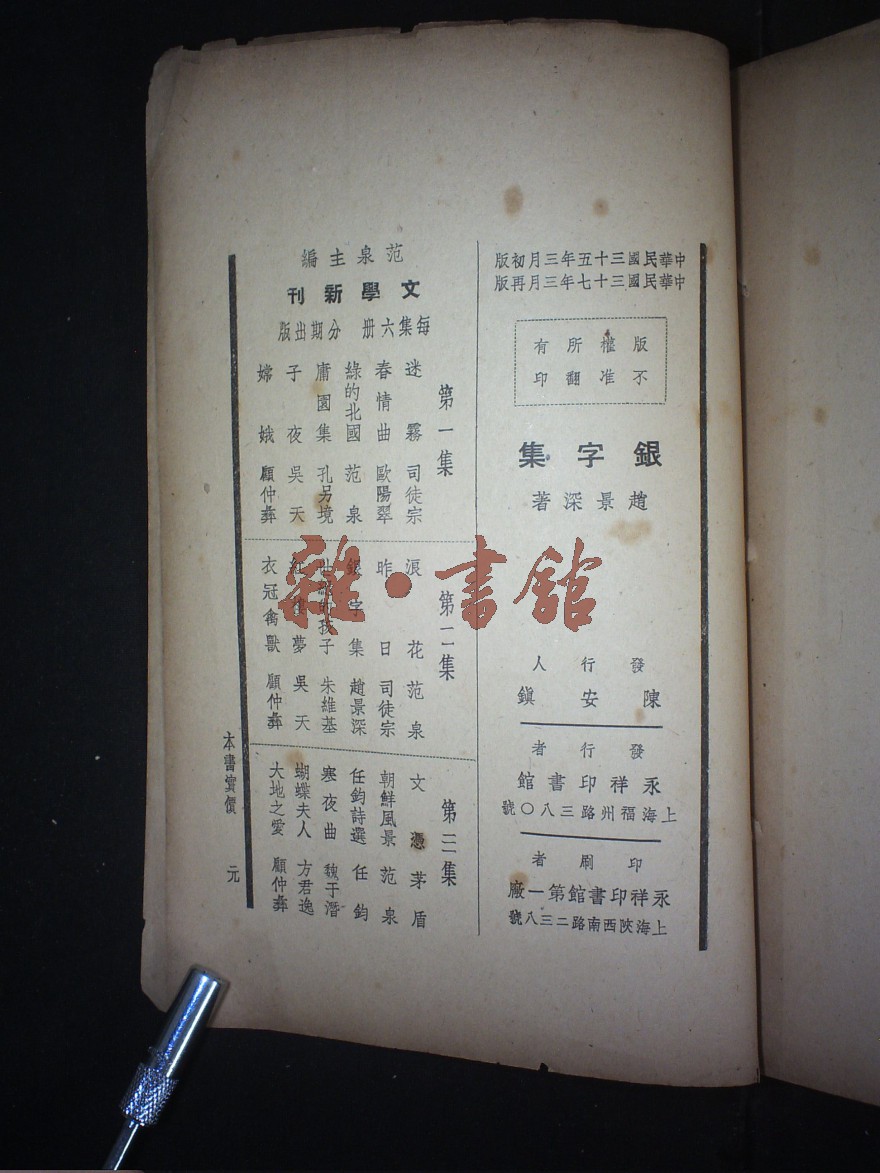 中華民國三十五年三月初版
中華民國三十七年三月再版
版權所有
不准翻印
銀字集
趙景深著
發行人
陳安鎮
發行者
永祥印書館
上海福州路三八〇號
印刷者
永祥印書館第一廠
上海陝西南路二三八號
范泉主編
文學新刊
每集六册 分期出版
第一集
迷霧 司徒宗
春情曲 歐陽翠
綠的北國 范泉
庸園集 孔另境
子夜 吳天
嫦娥 顧仲彝
第二集
浪花 范泉
昨日 司徒宗
銀字集 趙景深
孩子 朱維基
紅樓夢 吳天
衣冠禽獸 顧仲彝
第三集
文憑 茅盾
朝鮮風景 范泉
任鈞詩選 任鈞
寒夜曲 魏于潛
蝴蝶夫人 方君逸
大地之愛 顧仲彝
本書實價 元
雜·書館